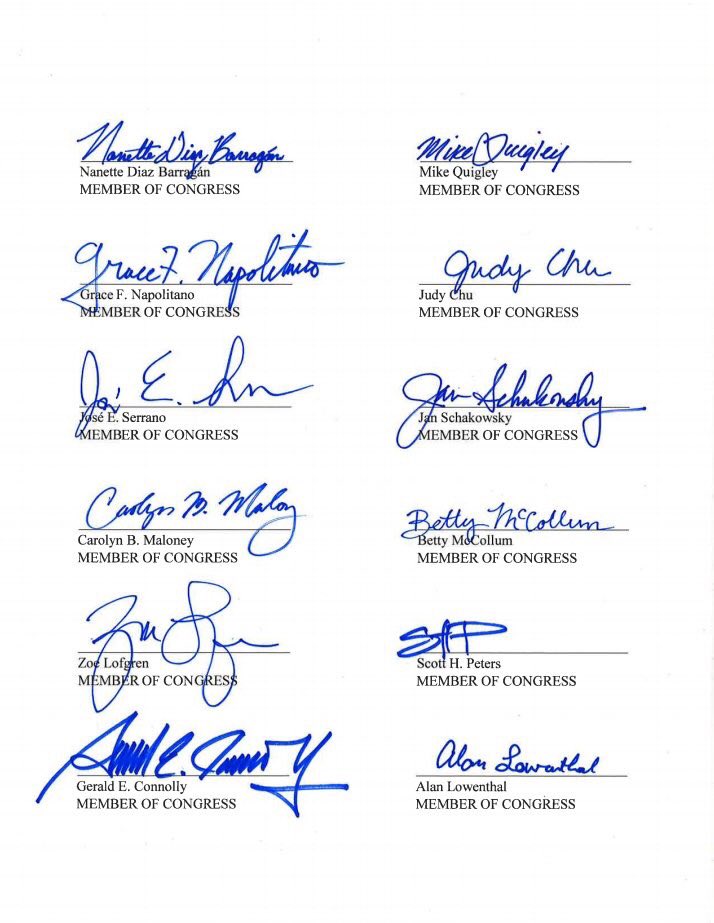 Nanette Diaz Barragán
Nanette Diaz Barragán
MEMBER OF CONGRESS
Mike Quigley
Mike Quigley
MEMBER OF CONGRESS
Grace F. Napolitano
Grace F. Napolitano
MEMBER OF CONGRESS
Judy Chu
Judy Chu
MEMBER OF CONGRESS
José E.
José E. Serrano
MEMBER OF CONGRESS
Jan Schakowsky
Jan Schakowsky
MEMBER OF CONGRESS
Carolyn B. Maloney
Carolyn B. Maloney
MEMBER OF CONGRESS
Betty McCollum
Betty McCollum
MEMBER OF CONGRESS
Zoe Lofgren
MEMBER OF CONGRESS
SHP
Scott H. Peters
MEMBER OF CONGRESS
Gerald E. Connolly
MEMBER OF CONGRESS
Alan Lowenthal
Alan Lowenthal
MEMBER OF CONGRESS